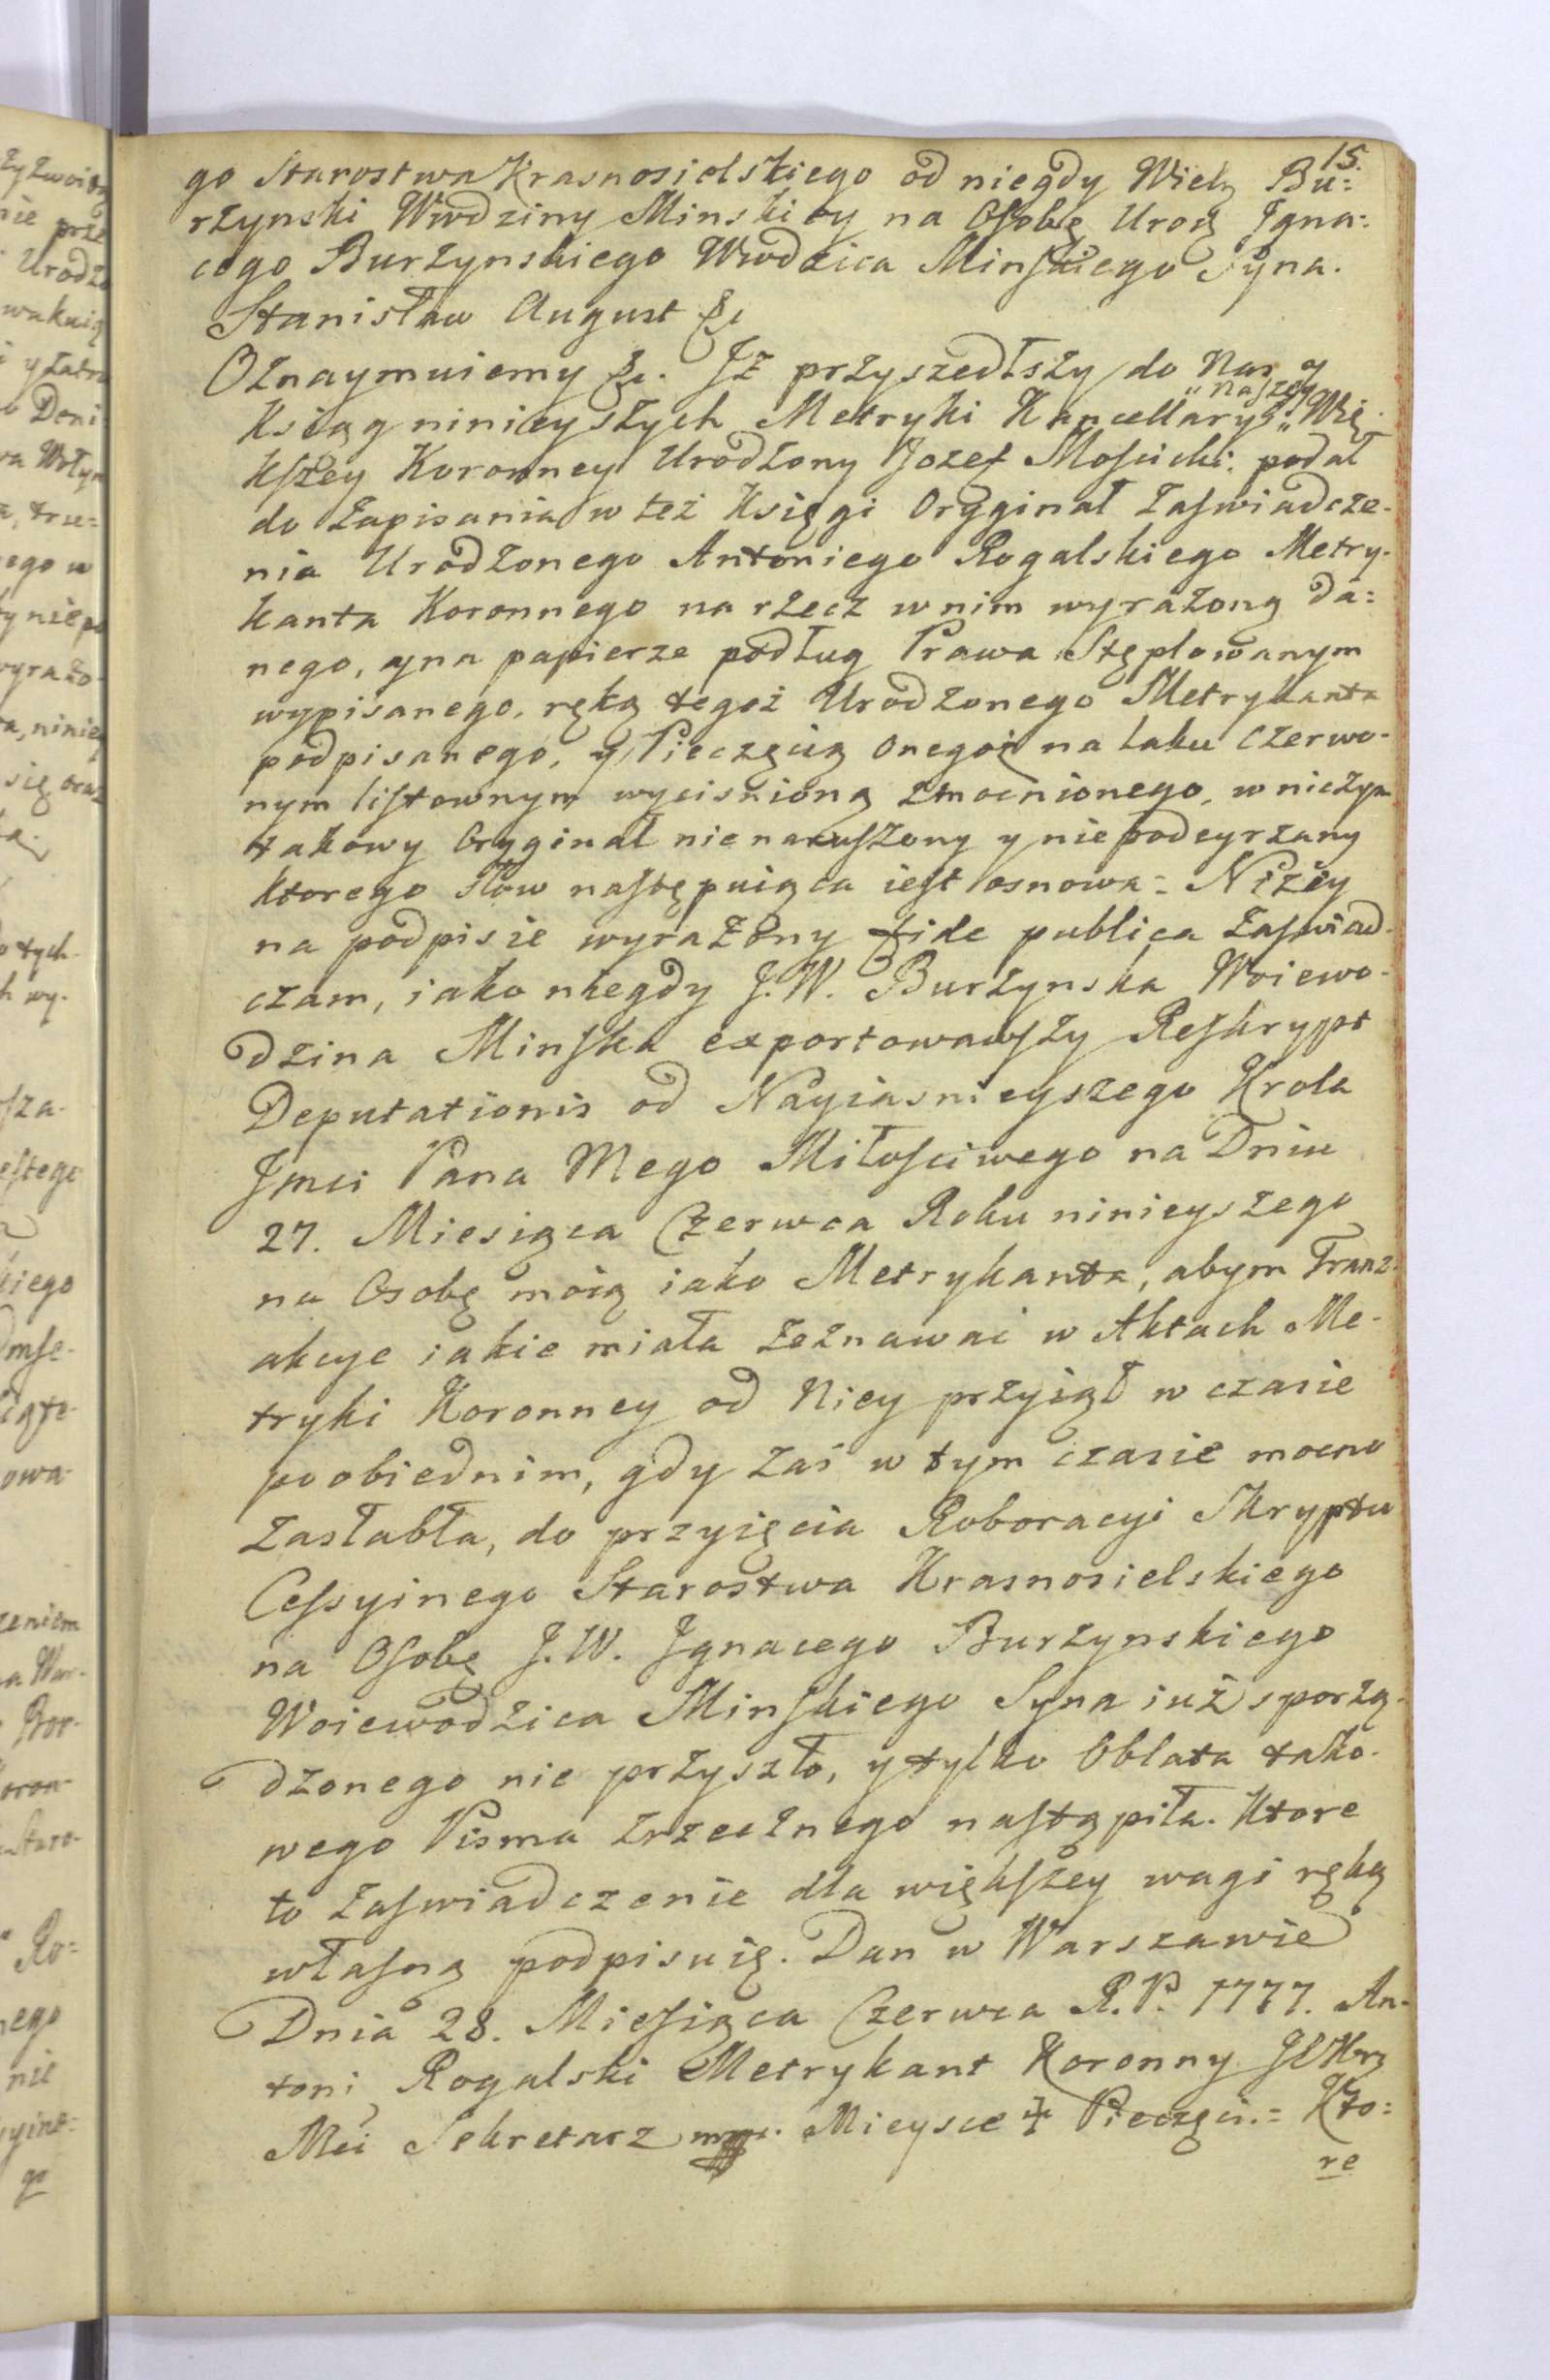 15.
go Starostwa Krasnosielskiego od niegdy Wielz Bu=
rzynski Wwdziny Minskiey na Osobę Urodz Igna=
cego Burzynskiego Wwdzica Minskiego Syna.
Stanisław August &c
Oznaymuiemy &c. Iż przyszedłszy do Nas y
Xsiąg ninieyszych Metryki Kancellaryi „Naszey„ Wię-
kszey Koronney Urodzony Jozef Moscicki podał
do zapisania w też Księgi Oryginał Zaswiadcze-
nia Urodzonego Antoniego Rogalskiego Metry-
kanta Koronnego na rzecz w nim wyrażoną da=
nego, a na papierze podług Prawa Stęplowanym
wypisanego, ręką tegoż Urodzonego Metrykanta
podpisanego, y Pieczęcią onegoż na laku czerwo-
nym listownym wycisnioną zmocnionego, w niczym
takowy Oryginał nienaruszony y niepodeyrzany
ktorego słow następuiąca iest osnowa = Niżey
na podpisie wyrażony fide publica zaswiad-
czam, iako niegdy J.W. Burzynska Woiewo-
dzina Minska exportowawszy Reskrypt
Deputationis od Nayiasnieyszego Krola
Jmci Pana Mego Miłosciwego na Dniu
27. Miesiąca Czerwca Roku ninieyszego
na Osobę moią iako Metrykanta, abym Tranz-
akcye iakie miała zeznawać w Aktach Me-
tryki Koronney od Niey przyiął w czasie
poobiednim, gdy zaś w tym czasie mocno
zasłabła, do przyięcia Roboracyi Skryptu
Cessyinego Starostwa Krasnosielskiego
na Osobę J.W. Ignacego Burzynskiego
Woiewodzica Minskiego Syna iuż sporzą-
dzonego nie przyszło, y tylko Oblata tako-
wego Pisma zrzecznego nastąpiła. Ktore
to zaswiadczenie dla większey wagi ręką
własną podpisuię. Dan w Warszawie
Dnia 28. Miesiąca Czerwca R.P. 1777. An-
toni Rogalski Metrykant Koronny JKr
Mci Sekretarz mp. Mieysce ☩ Pieczęci. = Kto=
re